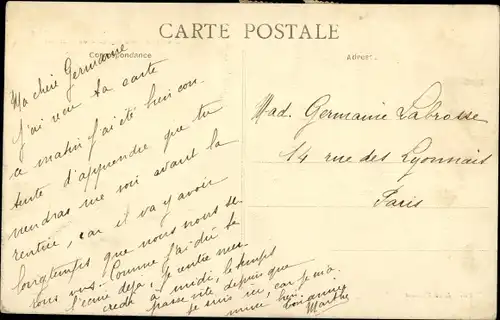 CARTE POSTALE
Correspondance
Ma chère Germaine
J'ai reçu ta carte
ce matin j'ai été bien con
tente d'apprendre que tu
viendras me voir avant la
rentrée, car il va y avoir
longtemps que nous nous se
rons vus. Comme j'ai dû te
l'écrire déjà, je rentre mer
credi à midi, le temps
passe vite depuis que
je suis ici, car je m'a
muse bien
bons amitiés
Marthe
Mad. Germaine Labrosse
14 rue des Lyonnais
Paris